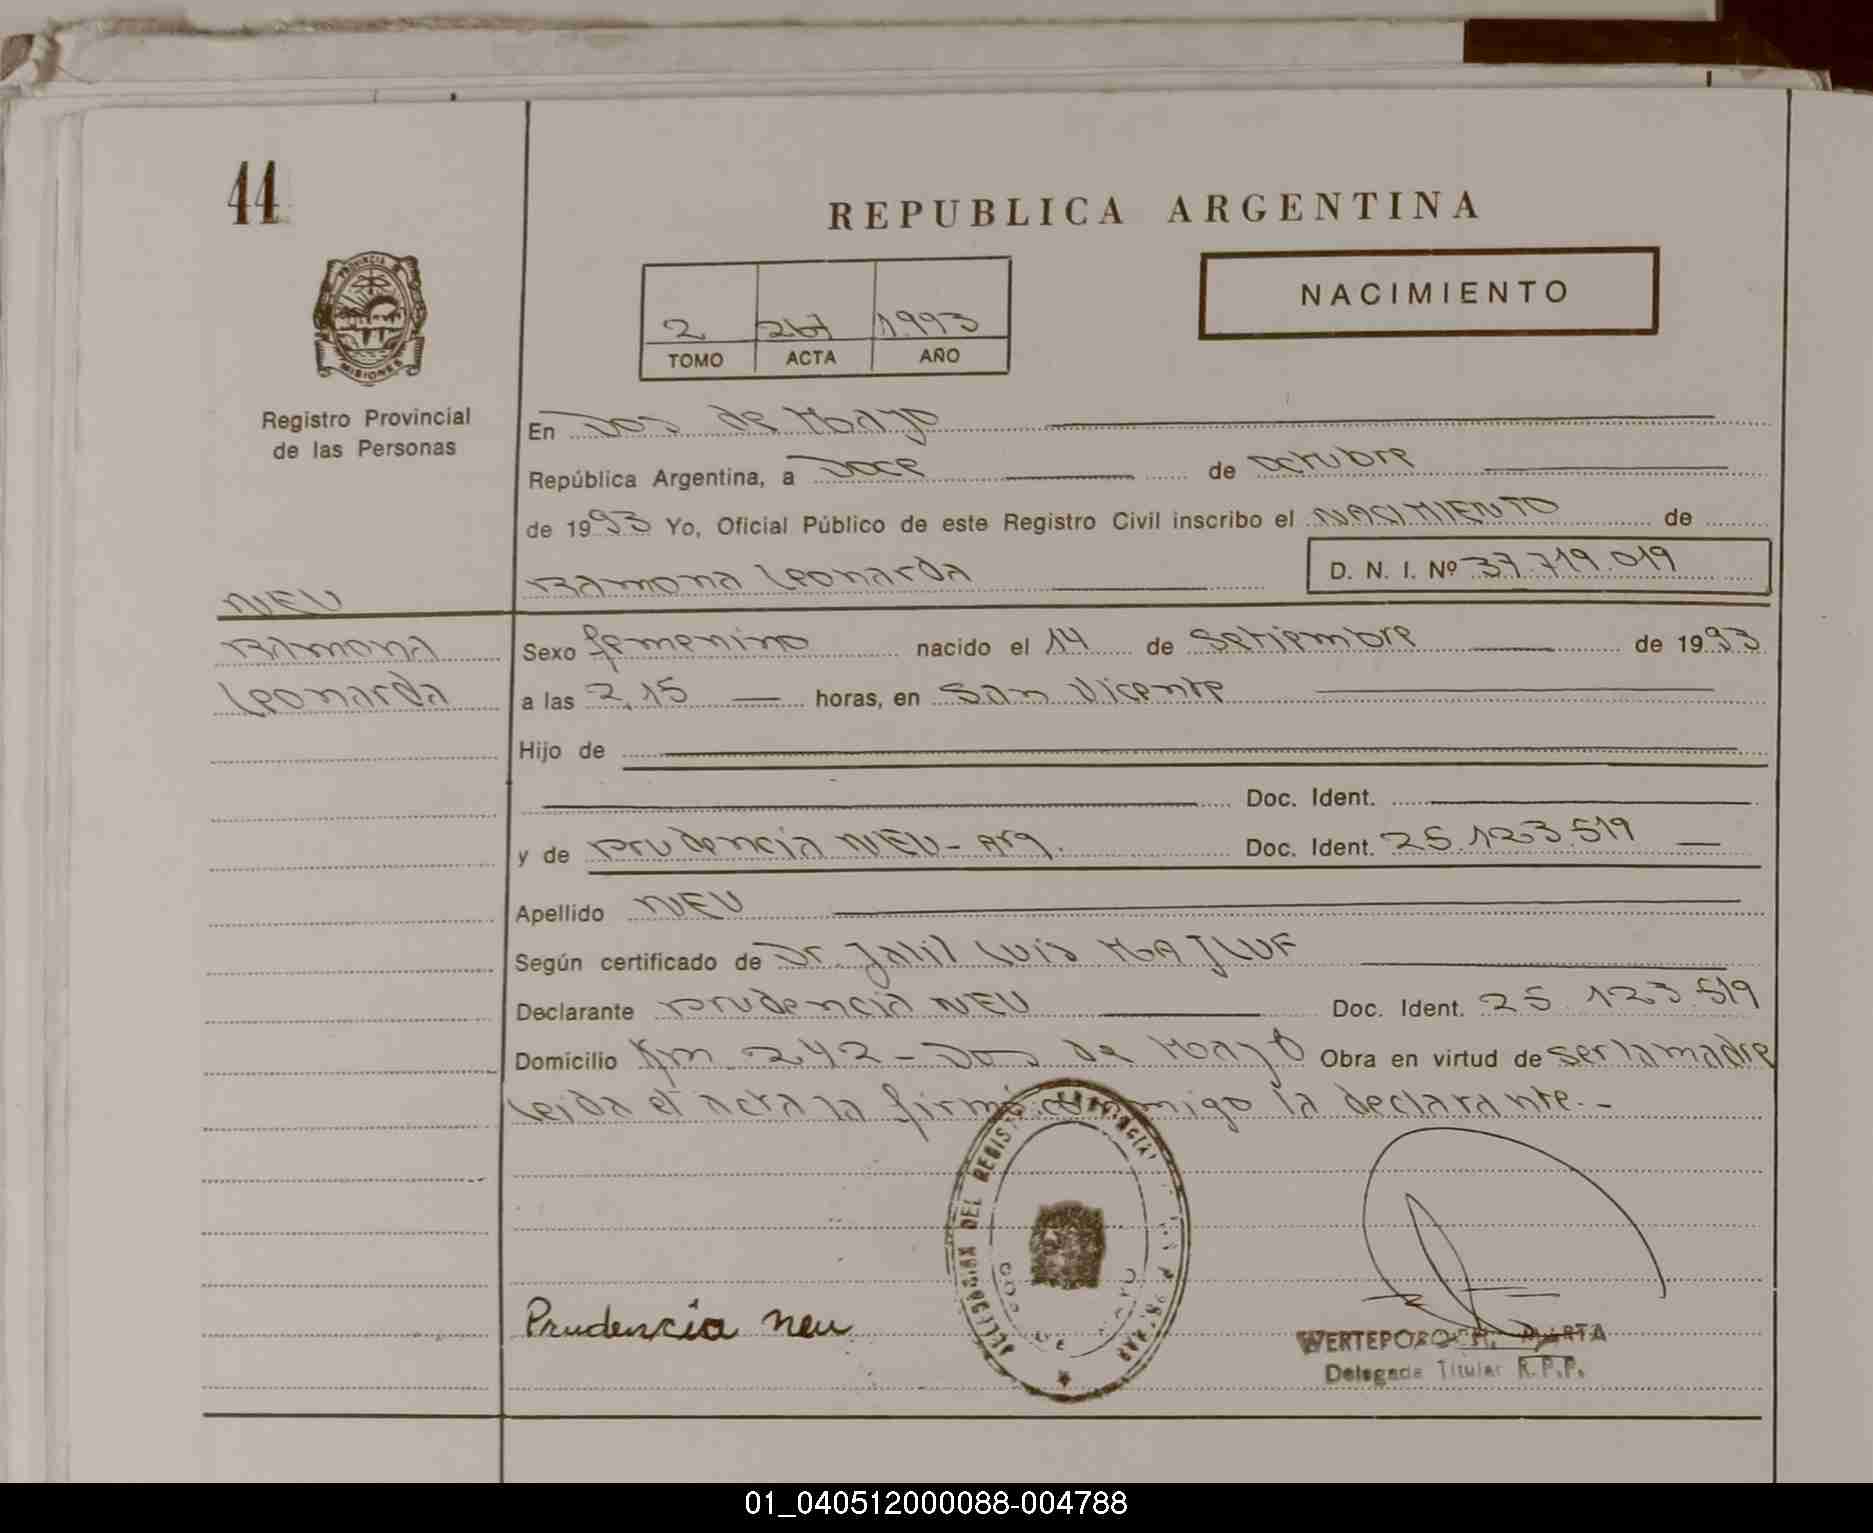 44
REPUBLICA ARGENTINA
PROVINCIA DE
MISIONES
NACIMIENTO
2 1993
TOMO ACTA AÑO
Registro Provincial
de las Personas
En Dos de Mayo
República Argentina, a Doce de octubre
de 1993 Yo, Oficial Público de este Registro Civil inscribo el NACIMIENTO de
Ramona Leonarda D. N. I. Nº 37.719.019
NEU
Ramona
Leonarda
Sexo femenino nacido el 14 de setiembre de 1993
a las 2,15 horas, en San Vicente
Hijo de
Doc. Ident.
y de Prudencia NEU - Arg. Doc. Ident. 25.123.519
Apellido NEU
Según certificado de Dr. Jalil Luis MAJLUF
Declarante Prudencia NEU Doc. Ident. 25.123.519
Domicilio Km 242 - Dos de Mayo Obra en virtud de ser la madre
Leida el acta la firmó conmigo la declarante.-
DELEGACION DEL REGISTRO PROVINCIAL
Prudencia Neu
MARTA
Delegada Titular R.P.P.
01_040512000088-004788